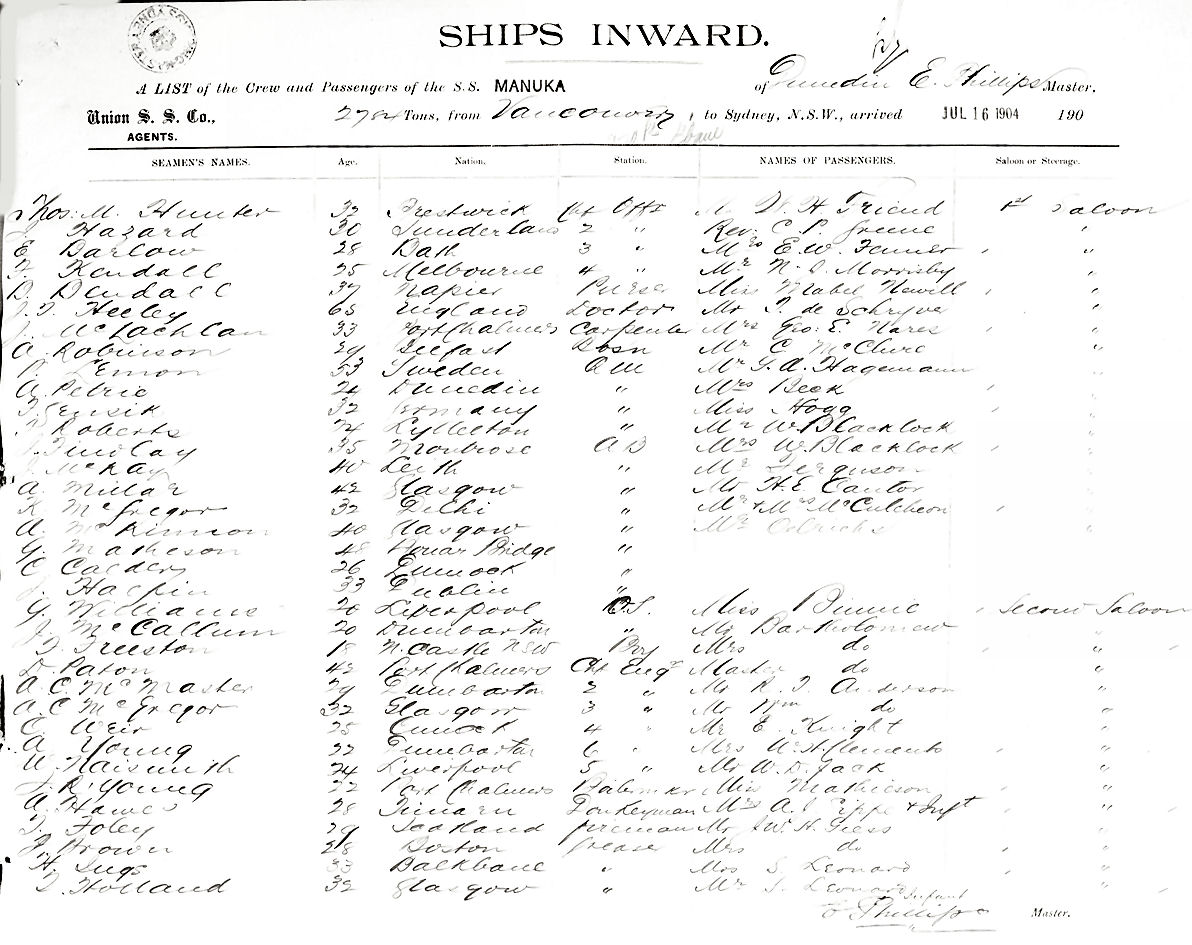 SHIPS INWARD.
A LIST of the Crew and Passengers of the S.S. MANUKA of Dunedin E. Phillips Master,
Union S. S. Co., 2784 Tons, from Vancouver, to Sydney, N.S.W., arrived JUL 16 1904 190
AGENTS.
SEAMEN'S NAMES. Age. Nation. Station. NAMES OF PASSENGERS. Saloon or Steerage.
Thos. M. Hunter 32 Prestwick Offr W. H. Friend 1st Saloon
Hazard 30 Sunderland 2 " Rev. C. P. Greene "
E. Barlow 28 Bath 3 " Mrs E. W. Fenner "
Kendall 25 Melbourne 4 " Mr N. Morrisby "
D. Dendall 37 Napier Purser Miss Mabel Newill "
Heeley 65 England Doctor Mr de Schryver "
McLachlan 33 Port Chalmers Carpenter Mrs Geo. E. Nares "
A. Robinson 29 Belfast Bosn Mr C. McClure "
Lemon 53 Sweden QM Mr G. A. Hagemann "
A. Petrie 24 Dunedin " Mrs Beck "
Jensik 32 Germany " Miss Hogg "
Roberts 24 Lyttelton " Mr W. Blacklock "
Findlay 35 Montrose AB Mrs W. Blacklock "
McKay 40 Leith " Mr Ferguson "
A. Millar 42 Glasgow " Mr H. E. Cantor "
K. McGregor 32 Delhi " Mr & Mrs McCutcheon "
A. McKinnon 40 Glasgow " Mr Oelrichs "
G. Matheson 48 Bonar Bridge "
C. Calder 26 "
Halpin 33 Dublin "
G. Williams 20 Liverpool O.S. Miss Binnie Second Saloon
J. McCallum 20 Dumbarton " Mr Bartholomew "
Freeston 18 N. Castle NSW Boy Mrs do "
D. Paton 42 Port Chalmers Chf Engr Master do "
A. C. McMaster 29 Dumbarton 2 " Mr R. J. Anderson "
A. C. McGregor 32 Glasgow 3 " Mr Wm do "
C. Weir 25 4 " Mr E. Knight "
A. Young 22 Dumbarton 6 " Mrs W. H. Clements "
W. Naismith 24 Liverpool 5 " Mr W. D. Jack "
J. R. Young 22 Port Chalmers Miss Mathieson "
A. Hawes 28 Timaru Donkeyman Mrs A. J. Pippe & Inft "
Foley 29 Scotland fireman Mr W. H. Giess "
Brown 28 Boston Greaser Mrs do "
H. 33 " Mrs S. Leonard "
Holland 32 Glasgow " Mr J. Leonard "
Infant
E. Phillips Master.